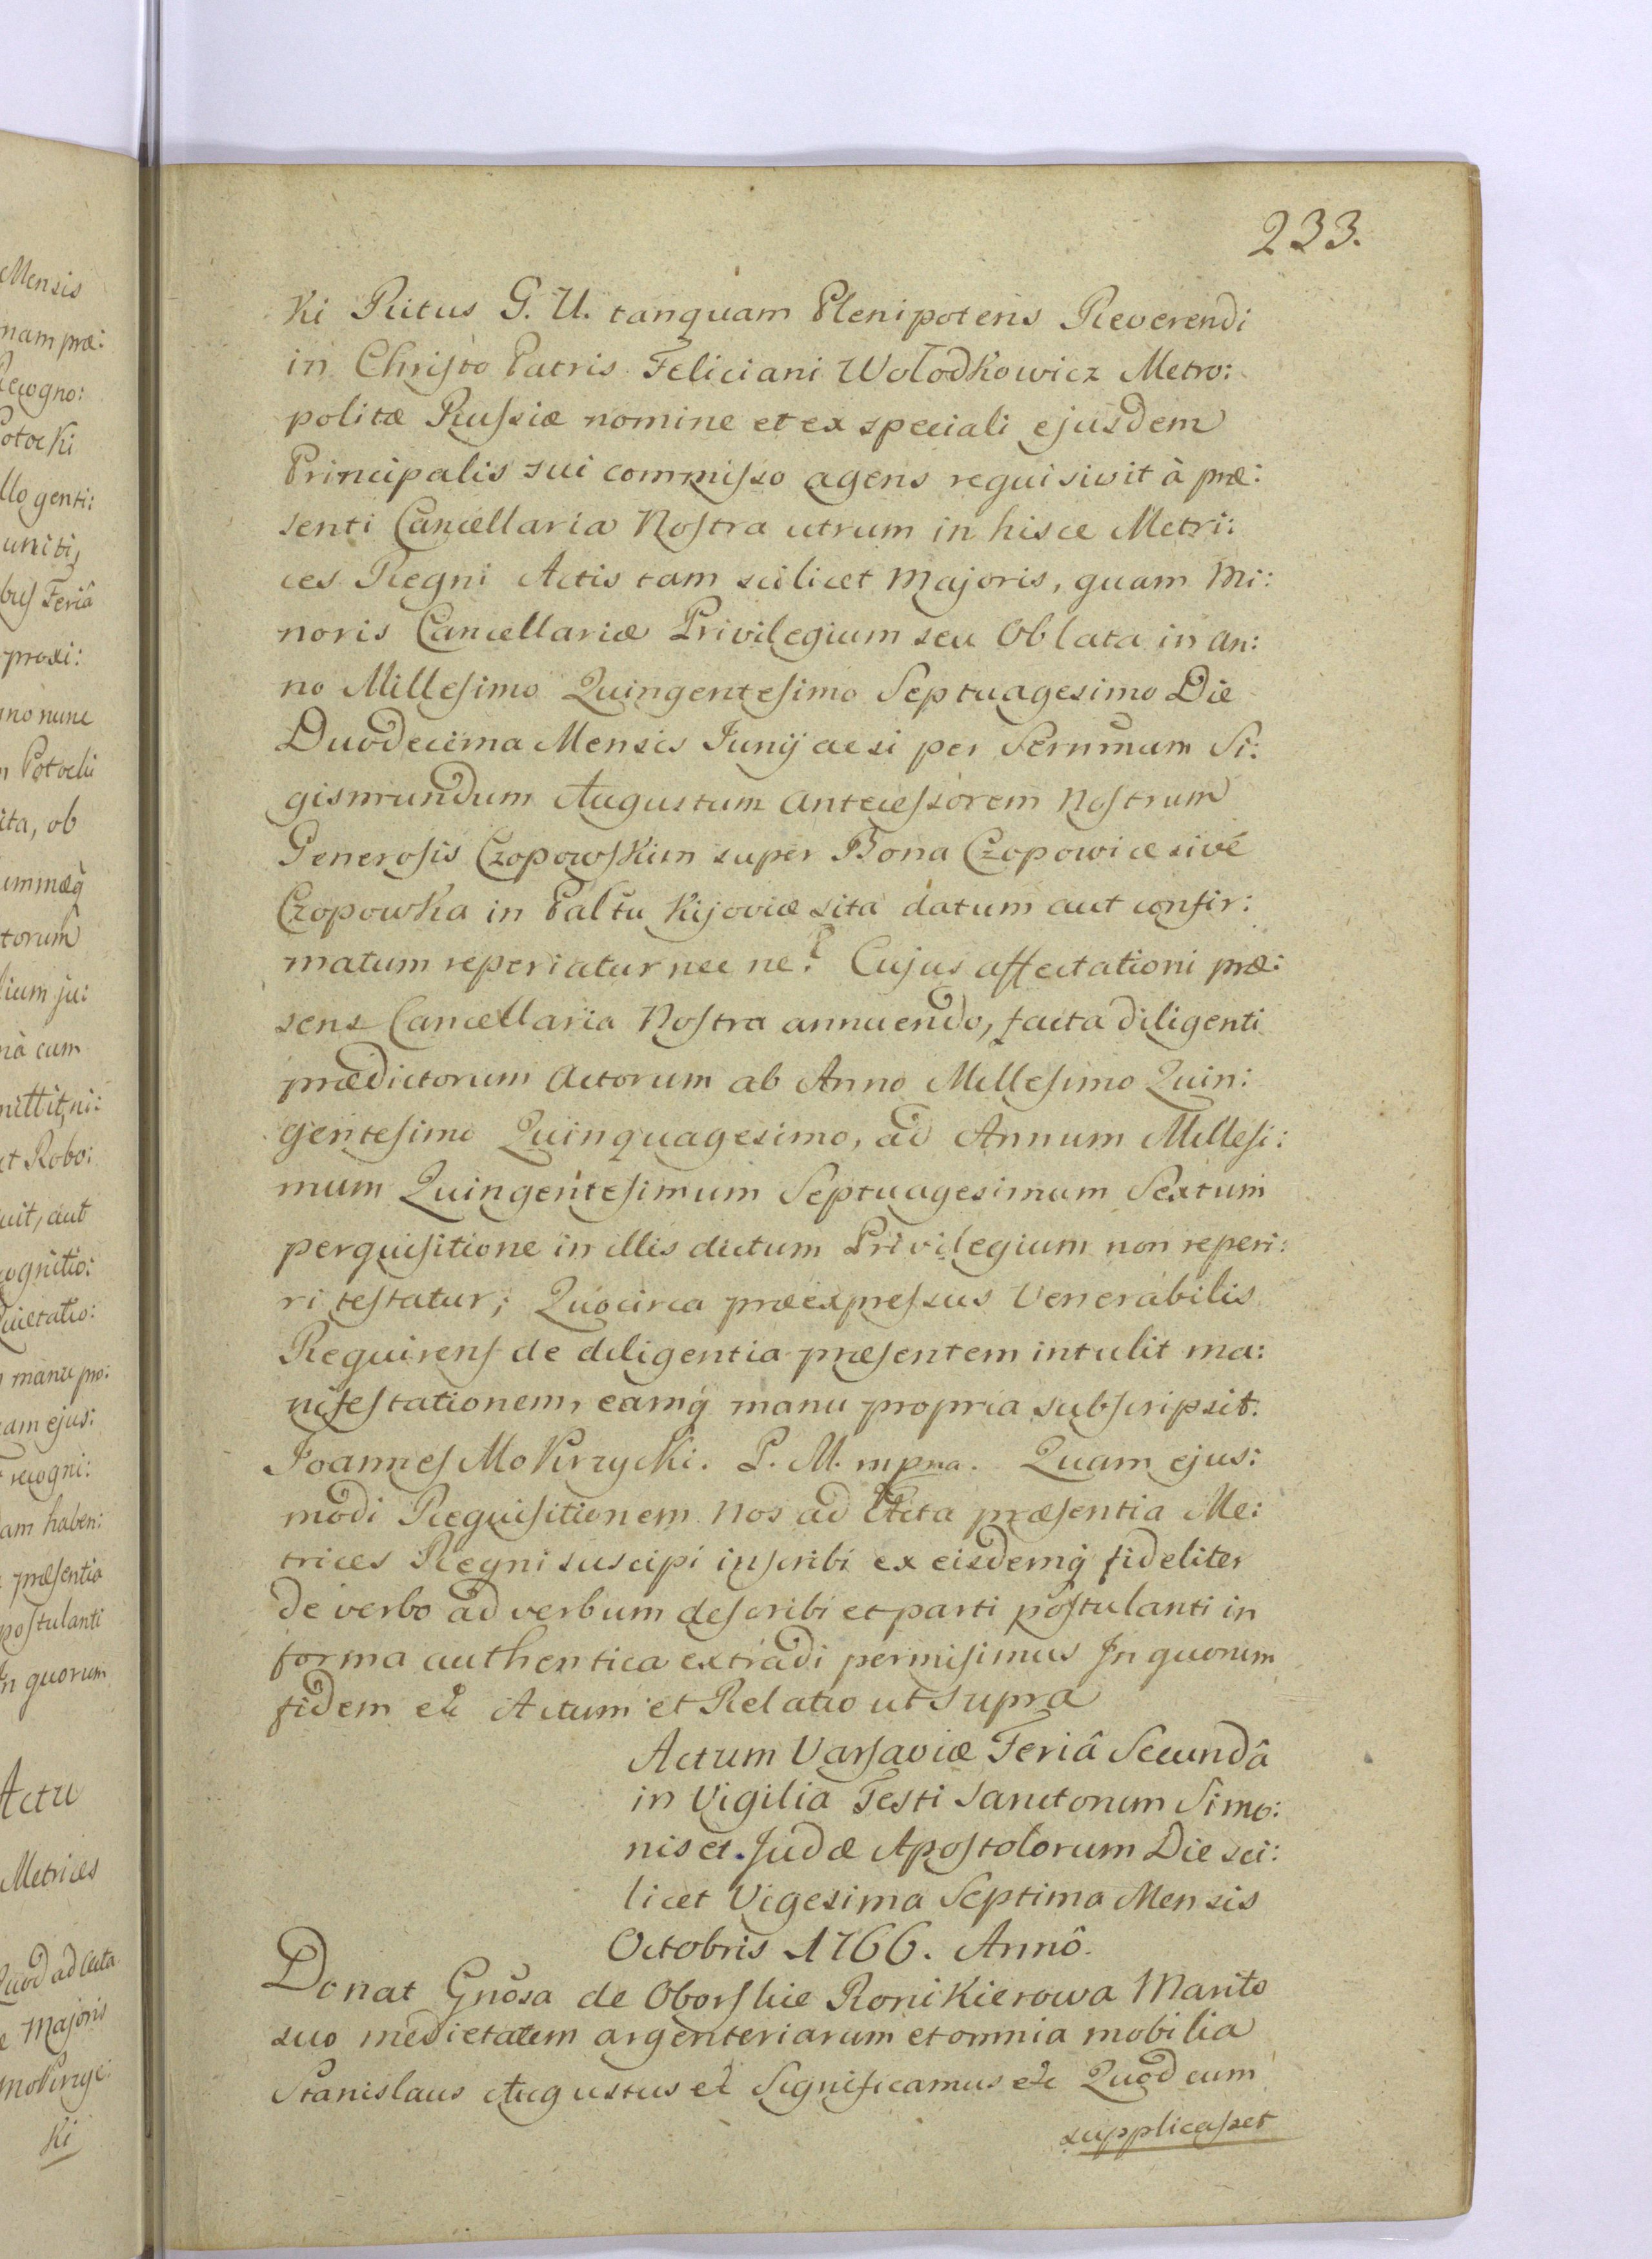 Mensis
nam præ:
Recogno:
Potocki
llo genti:
uniti,
bus Feriâ
proxi:
no nunc
n Potocki
ita, ob
ummæq̀
torum
lium ju:
nà cum
mittit, ni:
et Robo:
uit, aut
cognitio:
Quietatio:
manu pro:
am ejus:
recogni:
am haben:
præsentia
postulanti
In quorum
Actu
Metrices
Quod ad Acta
e Majoris
Mokrzyc:
ki
233.
ki Ritus G. U. tanquam Plenipotens Reverendi
in Christo Patris Feliciani Wołodkowicz Metro:
politæ Russiæ nomine et ex speciali ejusdem
Principalis sui commisso agens requisivit à præ:
senti Cancellaria Nostra utrum in hisce Metri:
ces Regni Actis tam scilicet Majoris, quam Mi:
noris Cancellariæ Privilegium seu Oblata in An:
no Millesimo Quingentesimo Septuagesimo Die
Duodecima Mensis Junij acsi per Sernmum Si:
gismundum Augustum Antecessorem Nostrum
Generosis Czopowskim super Bona Czopowice sivé
Czopowka in Paltu Kijoviæ sita datum aut confir:
matum reperiatur nec ne? Cujus affectationi præ:
sens Cancellaria Nostra annuendo, facta diligenti
prædictorum Actorum ab Anno Millesimo Quin:
gentesimo Quinquagesimo, ad Annum Millesi:
mum Quingentesimum Septuagesimum Sextum
perquisitione in illis dictum Privilegium non reperi:
ri testatur; Quocirca præexpressus Venerabilis
Requirens de diligentia præsentem intulit ma:
nifestationem, eamq̀ manu propria subscripsit.
Joannes Mokrzycki. P. M. mpria. Quam ejus:
modi Requisitionem Nos ad Acta præsentia Me:
trices Regni suscipi inscribi ex eisdemq̀ fideliter
de verbo ad verbum describi et parti postulanti in
forma authentica extradi permisimus In quorum
fidem etc Actum et Relatio ut supra
Actum Varsaviæ Feriâ Secundâ
in Vigilia Festi Sanctorum Simo:
nis et Judæ Apostolorum Die sci:
licet Vigesima Septima Mensis
Octobris 1766. Annô.
Donat Gnosa de Oborskie Ronikierowa Marito
suo medietatem argenteriarum et omnia mobilia
Stanislaus Augustus etc Significamus etc Quod cum
supplicasset